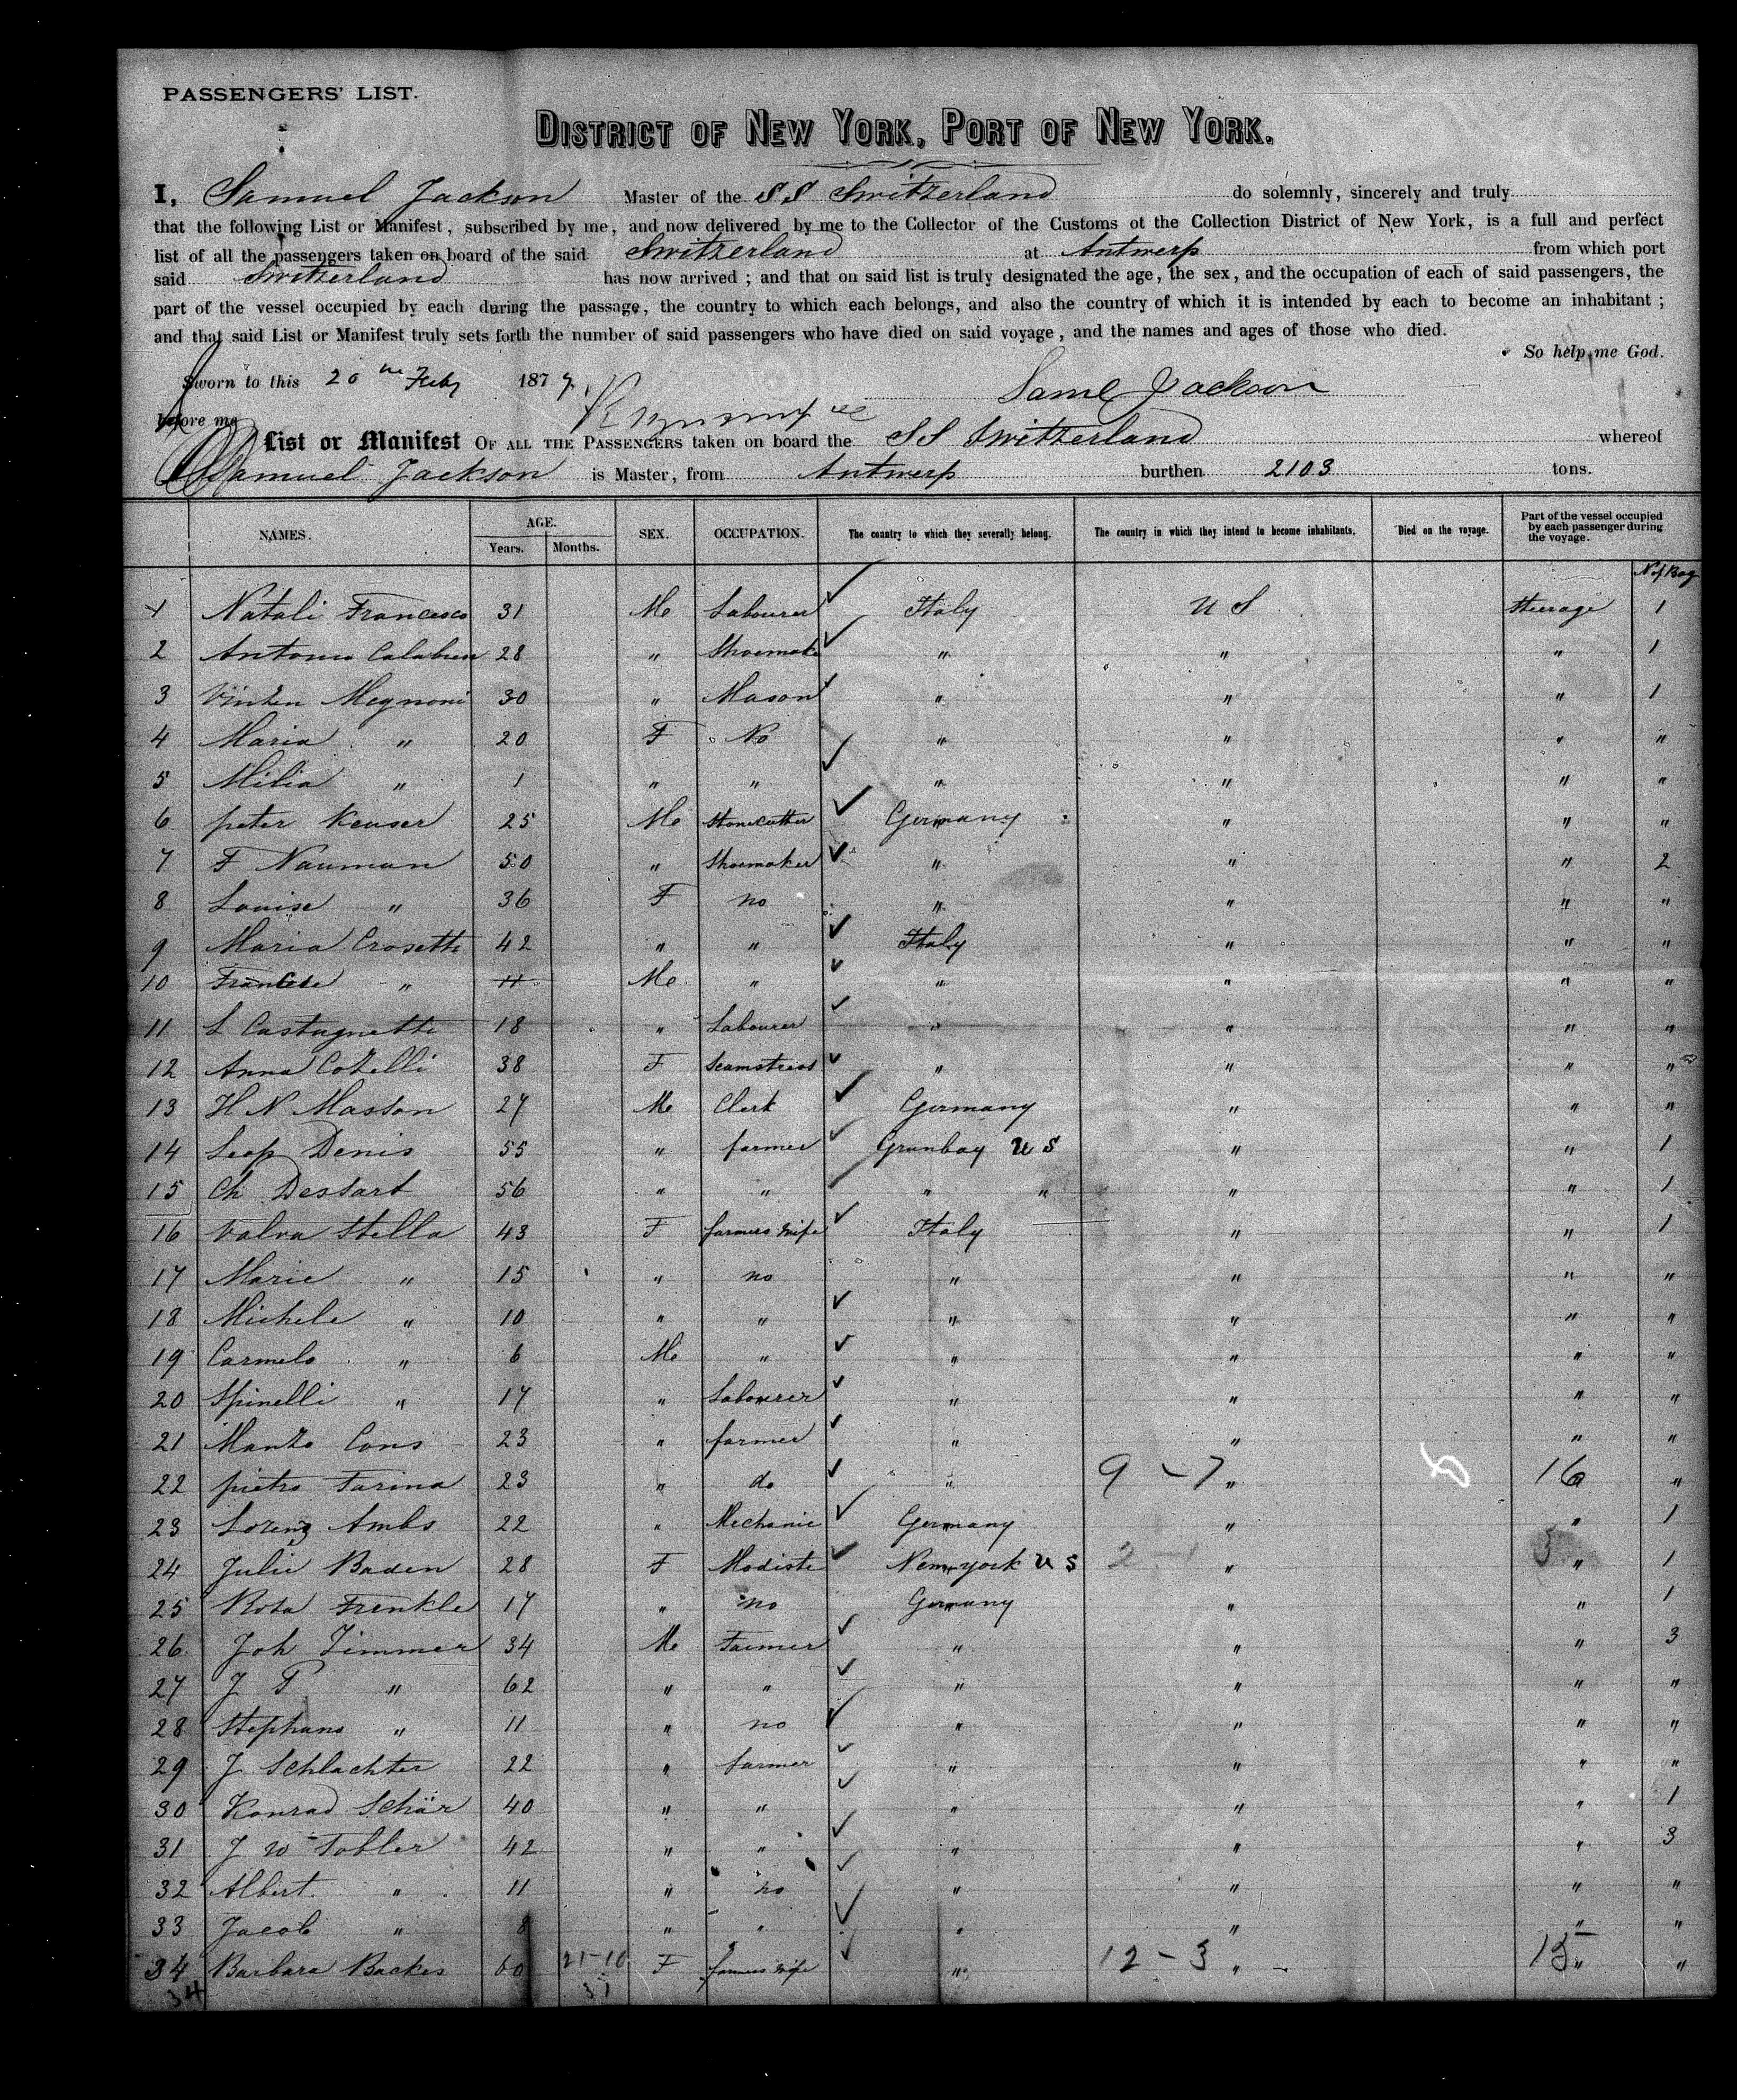 PASSENGERS' LIST.
DISTRICT OF NEW YORK, PORT OF NEW YORK.
I, Samuel Jackson Master of the SS Switzerland do solemnly, sincerely and truly
that the following List or Manifest, subscribed by me, and now delivered by me to the Collector of the Customs ot the Collection District of New York, is a full and perfect
list of all the passengers taken on board of the said Switzerland at Antwerp from which port
said Switzerland has now arrived; and that on said list is truly designated the age, the sex, and the occupation of each of said passengers, the
part of the vessel occupied by each during the passage, the country to which each belongs, and also the country of which it is intended by each to become an inhabitant;
and that said List or Manifest truly sets forth the number of said passengers who have died on said voyage, and the names and ages of those who died.
So help me God.
Sworn to this 20 Feby 1879. Saml Jackson
before me
List or Manifest OF ALL THE PASSENGERS taken on board the SS Switzerland whereof
Samuel Jackson is Master, from Antwerp burthen 2103 tons.
NAMES. AGE. Years. Months. SEX. OCCUPATION. The country to which they severally belong. The country in which they intend to become inhabitants. Died on the voyage. Part of the vessel occupied by each passenger during the voyage.
N of Bag
1 Natali Francesco 31 Me Labourer Italy U S Steerage 1
2 Antonio Calabrea 28 " Shoemake " " " 1
3 Vinten Megnoni 30 " Mason " " " 1
4 Maria " 20 F No " " " "
5 Milia " 1 " " " " " "
6 peter Keuser 25 Me Stonecutter Germany " " "
7 F Nauman 50 " Shoemaker " " " 2
8 Louise " 36 F no " " " "
9 Maria Crosetti 42 " " Italy " " "
10 " 11 Me " " " " "
11 L Castagnetti 18 " Labourer " " " "
12 Anna Cotelli 38 F Seamstress " " " "
13 H N Masson 27 Me Clerk Germany " " "
14 Leop Denis 55 " farmer Grunbay U S " " 1
15 Ch Dessart 56 " " " " " " 1
16 Valva Stella 43 F farmers wife Italy " " 1
17 Marie " 15 " no " " " "
18 Michele " 10 " " " " " "
19 Carmelo " 6 Me " " " " "
20 Spinelli " 17 " Labourer " " " "
21 Manzo Cons 23 " farmer " " " "
22 pietro Farina 23 " do " 9 - 7 " 16 "
23 Lorenz Ambs 22 " Mechanic Germany " " 1
24 Julie Baden 28 F Modiste New-york U S 2 - 1 " 5 " 1
25 Rosa Frenkle 17 " no Germany " " 1
26 Joh Zimmer 34 Me Farmer " " " 3
27 J P " 62 " " " " " "
28 Stephans " 11 " no " " " "
29 J Schlachter 22 " farmer " " " "
30 Konrad Schär 40 " " " " " 1
31 J W Tobler 42 " " " " " 3
32 Albert " 11 " no " " " "
33 Jacob " 8 " " " " " "
34 Barbara Backes 60 21-10 F farmers wife " 12 - 3 " 15 " "
34 31